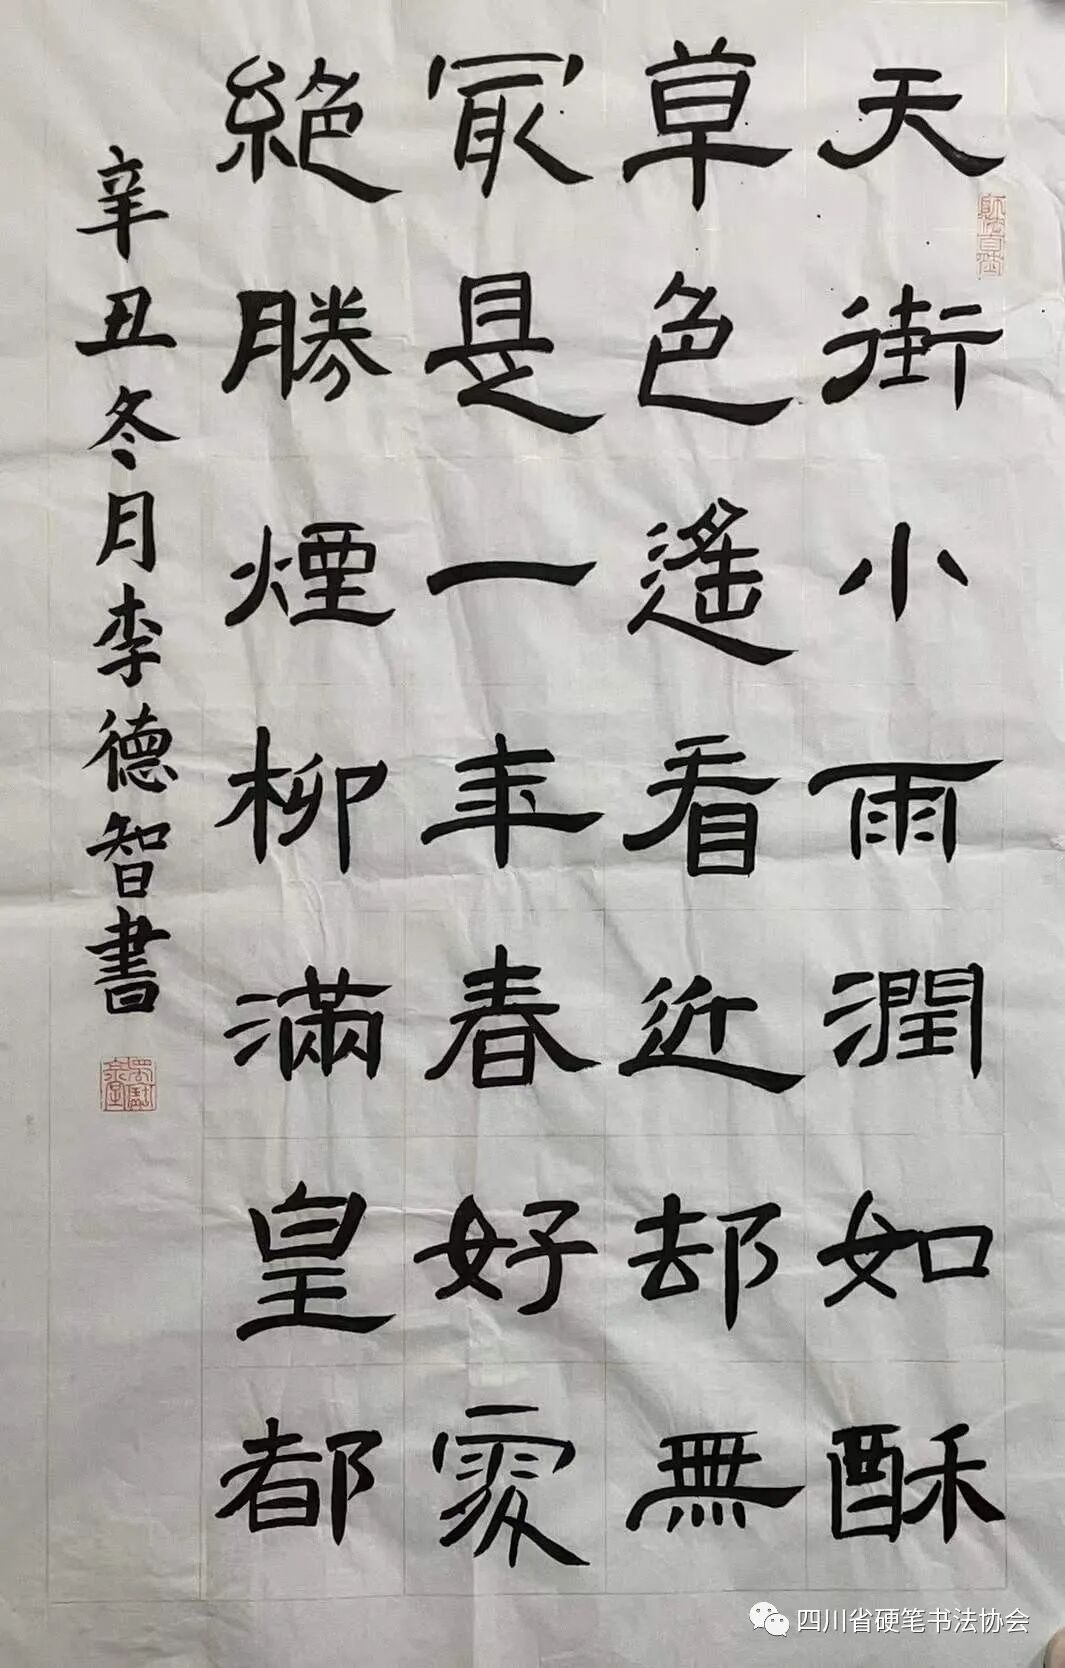 天街小雨潤如酥
草色遙看近却無
冣是一年春好處
絕勝煙柳滿皇都
辛丑冬月李德智書
四川省硬笔书法协会